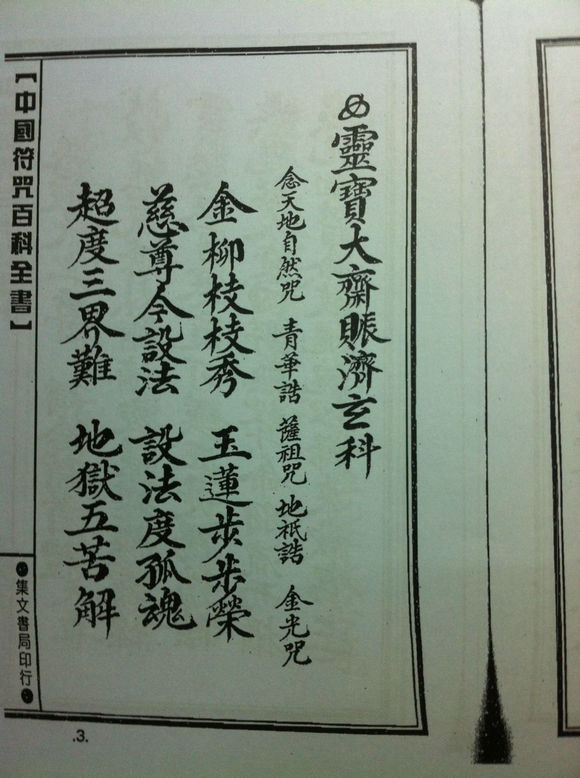 靈寶大齋賑濟玄科
念天地自然咒 青華誥 薩祖咒 地祇誥 金光咒
金柳枝枝秀 玉蓮步步榮
慈尊令設法 設法度孤魂
超度三界難 地獄五苦解
【中國符咒百科全書】
集文書局印行
.3.